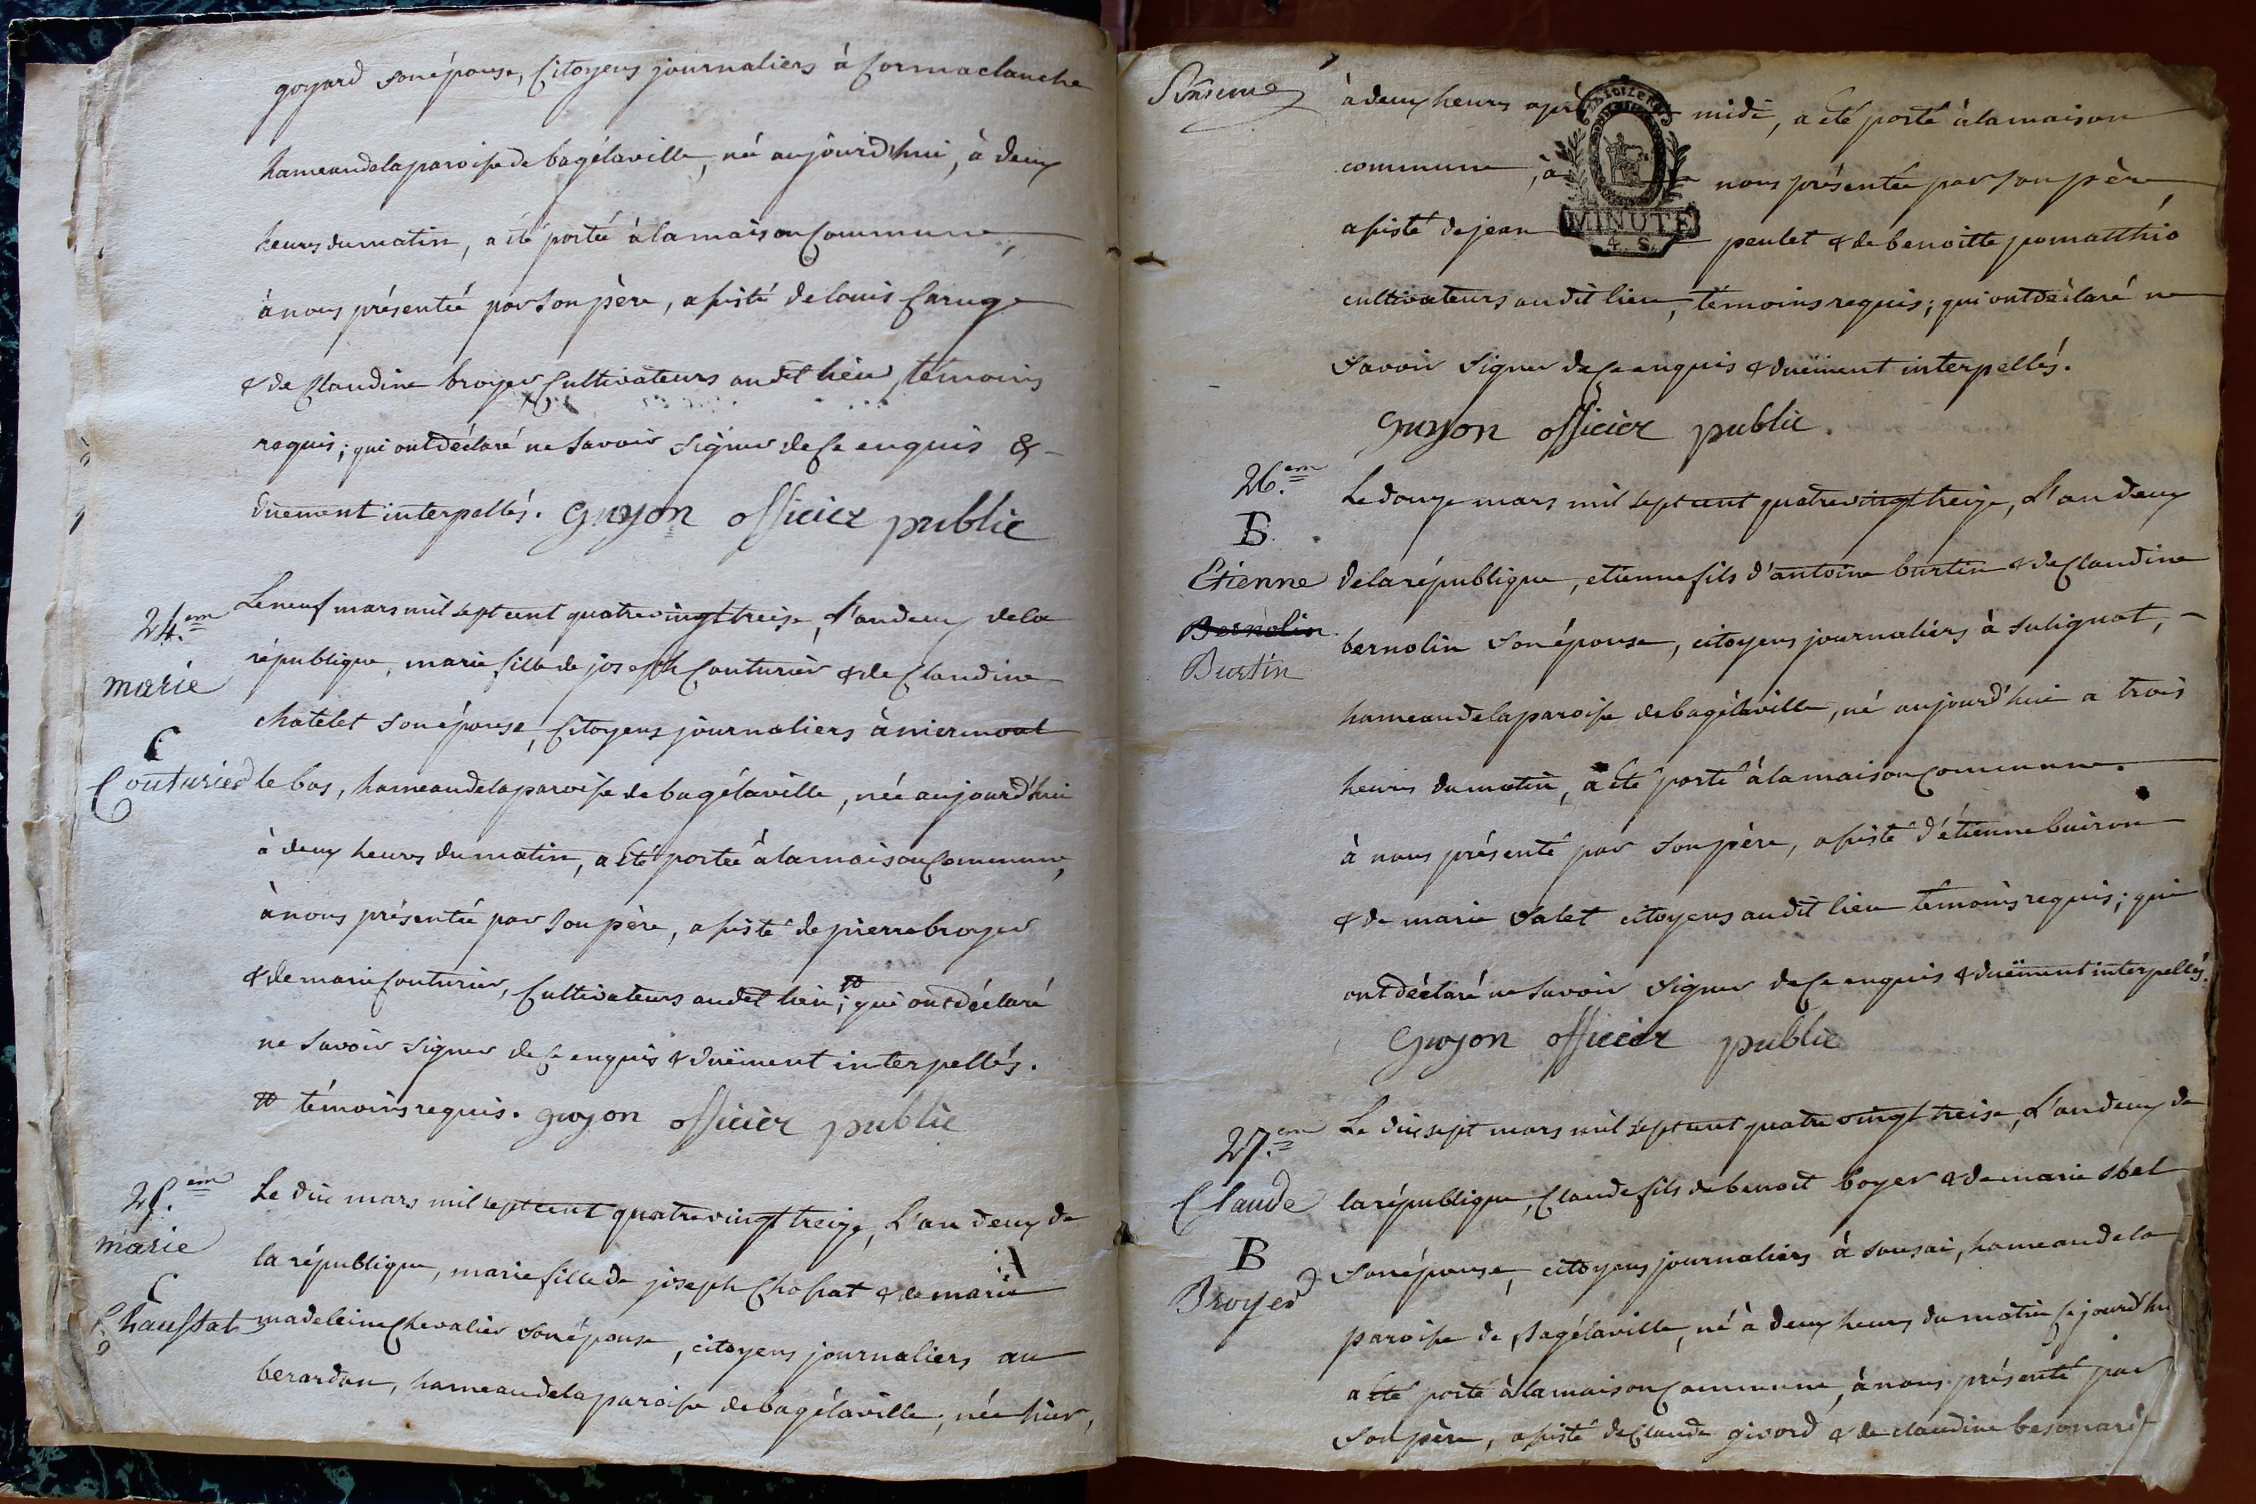 goyard son épouse, Citoyens journaliers à Cormaclanche
hameau de la paroisse de bagélaville, né aujourd'hui, à deux
heures du matin, a été portée à la maison Commune,
à nous présentée par son père, assisté de louis Caruge
& de Claudine broyer Cultivateurs audit lieu, témoins
requis; qui ont déclaré ne Savoir signer de Ce enquis &
duement interpellés. Guyon officier public
24.em
marie
C
Couturier
Le neuf mars mil sept cent quatre vingt treise, L'an deux de la
république, marie fille de joseph Couturier & de Claudine
chatelet son épouse, Citoyens journaliers à niermont
le bas, hameau de la paroisse de bagélaville, née aujourd'hui
à deux heures du matin, a été portée à la maison Commune,
à nous présentée par son père, assisté de pierre broyer
& de marie Couturier, Cultivateurs audit lieu; # qui ont déclaré
ne Savoir signer de Ce enquis & duëment interpellés.
# témoins requis. guyon officier public
25.em
marie
C
Chaussat
Le dix mars mil sept cent quatre vingt treize, L'an deux de
la république, marie fille de joseph Chossat & de marie
madeleine Chevalier son épouse, citoyens journaliers au
berardon, hameau de la paroisse de bagélaville, née hier,
à deux heures après midi, a été porté à la maison
commune, à nous présentée par son père
assisté de jean peulet & de benoitte pomatthio
MINUTE
4. S.
cultivateurs audit lieu, témoins requis; qui ont déclaré ne
Savoir Signer de Ce enquis & duëment interpellés.
guyon officier public.
26.em
B
Etienne
Bernolin
Burtin
Le douze mars mil sept cent quatre vingt treize, L'an deux
de la république, etienne fils d'antoine burtin & de Claudine
bernolin Son épouse, citoyens journaliers à Sulignat,
hameau de la paroisse de bagélaville, né aujourd'hui a trois
heures du matin, a été porté à la maison Commune.
à nous présenté par Son père, assisté d'étienne buiron
& de marie Salet citoyens audit lieu témoins requis; qui
ont déclaré ne Savoir Signer de Ce enquis & duëment interpellés.
Guyon officier public
27.em
Claude
B
Broyer
Le dix sept mars mil sept cent quatre vingt treise, L'an deux de
la république, Claude fils de benoit boyer & de marie
Son épouse, citoyens journaliers à Sousai, hameau de la
paroisse de Bagélaville, né à deux heures du matin Ce jourd'hui
a été porté à la maison Commune, à nous présenté par
Son père, assisté de Claude givord & de claudine